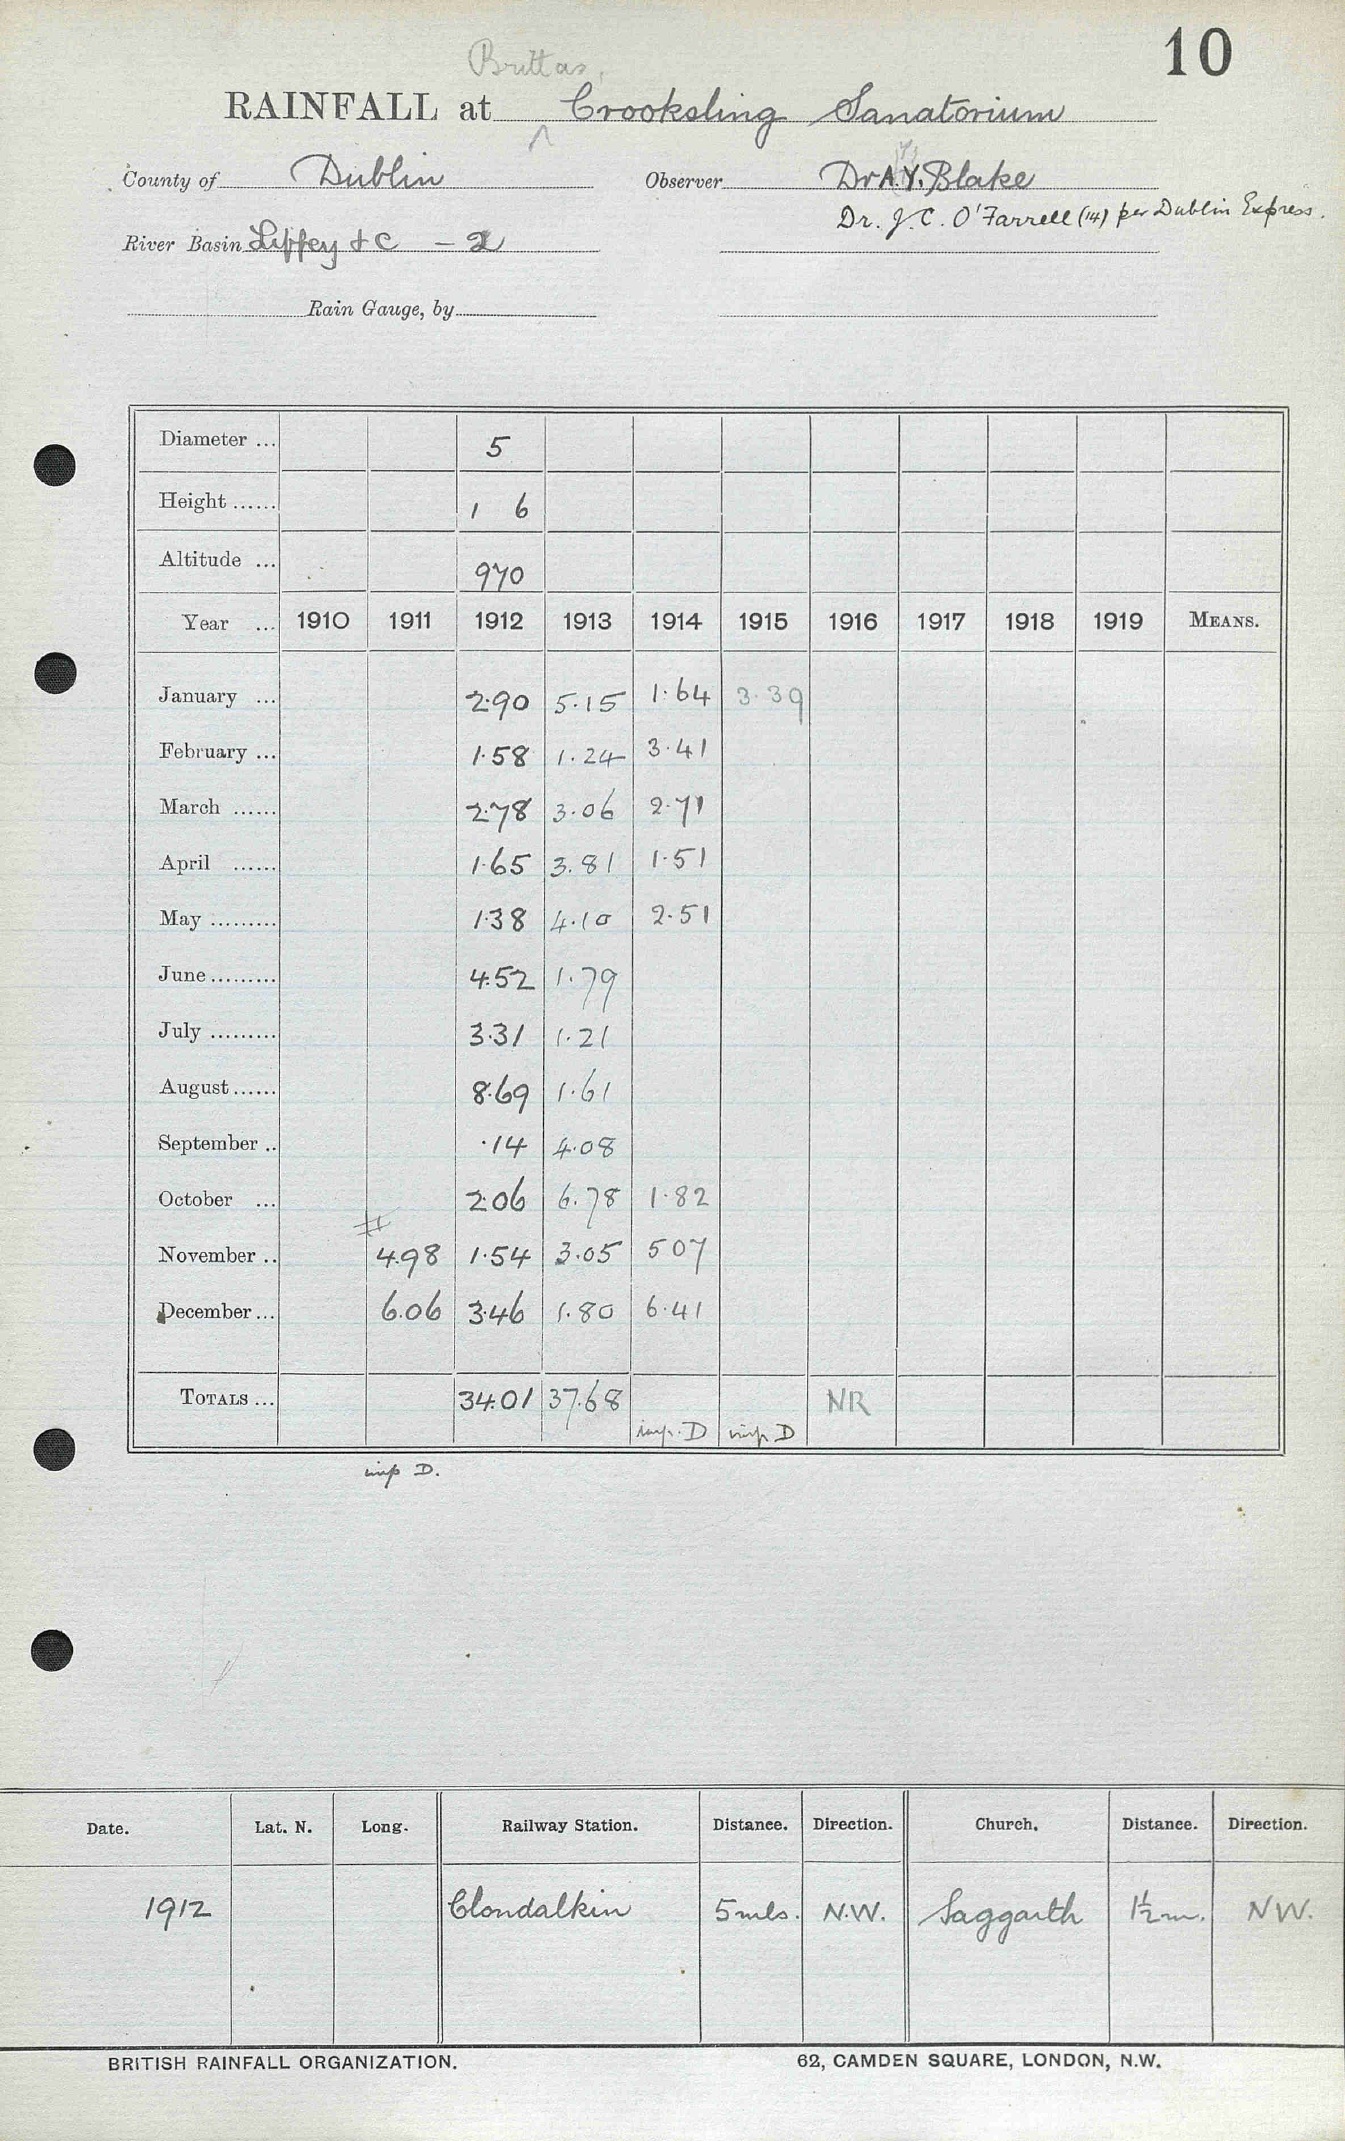 10
Brittas,
RAINFALL at Crooksling Sanatorium
County of Dublin Observer Dr A.Y. Blake
Dr. J. C. O'Farrell (14) per Dublin Express.
River Basin Liffey & C - 2
Rain Gauge, by
Diameter ... 5
Height ...... 1 6
Altitude ... 970
Year ... 1910 1911 1912 1913 1914 1915 1916 1917 1918 1919 MEANS.
January ... 2.90 5.15 1.64 3.39
February ... 1.58 1.24 3.41
March ...... 2.78 3.06 2.71
April ...... 1.65 3.81 1.51
May ......... 1.38 4.10 2.51
June ......... 4.52 1.79
July ......... 3.31 1.21
August ...... 8.69 1.61
September .. .14 4.08
October ... 2.06 6.78 1.82
November .. 4.98 1.54 3.05 5 07
December ... 6.06 3.46 1.80 6.41
TOTALS ... 34.01 37.68 NR
imp. D imp. D
imp D.
Date. Lat. N. Long. Railway Station. Distance. Direction. Church. Distance. Direction.
1912 Clondalkin 5 mls. N.W. Saggarth 1½ m. NW.
BRITISH RAINFALL ORGANIZATION. 62, CAMDEN SQUARE, LONDON, N.W.